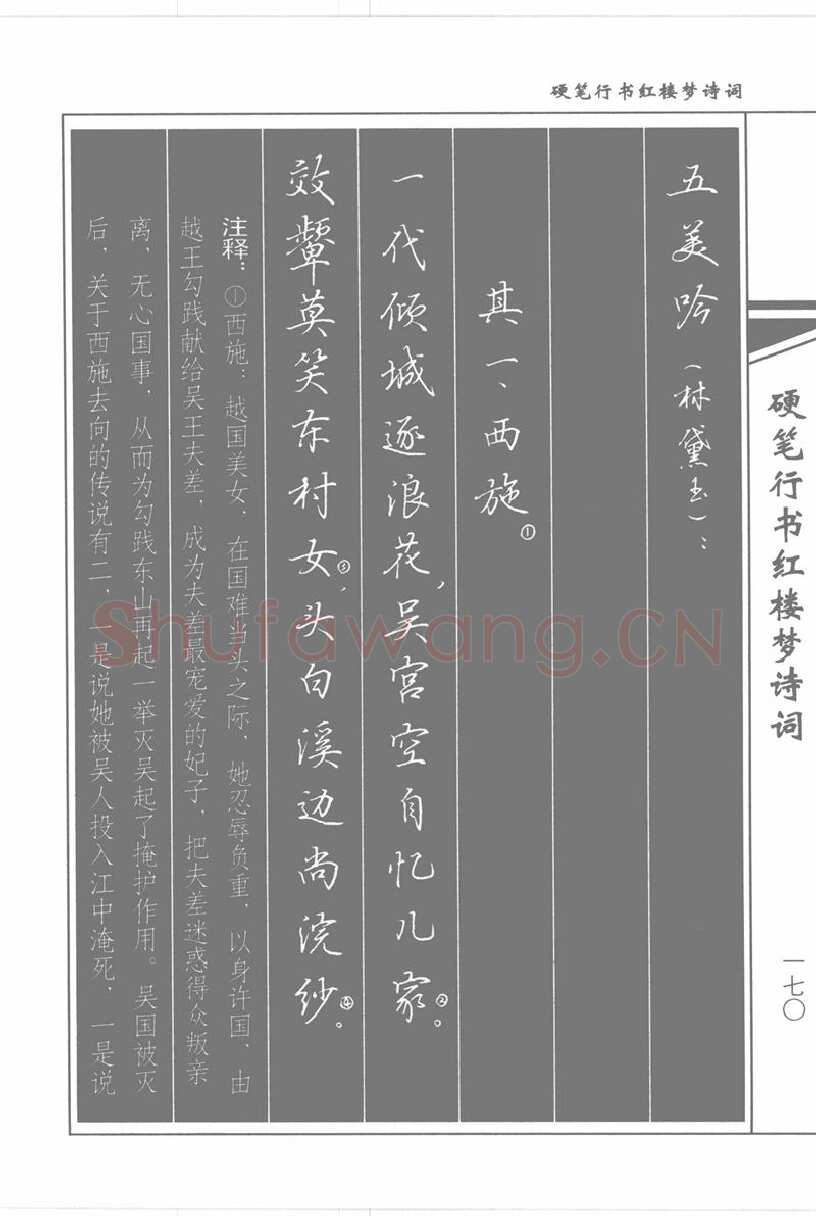 硬笔行书红楼梦诗词
五美吟（林黛玉）：
其一、西施①
一代倾城逐浪花，吴宫空自忆儿家②。
效颦莫笑东村女③，头白溪边尚浣纱④。
注释：①西施：越国美女，在国难当头之际，她忍辱负重，以身许国，由
越王勾践献给吴王夫差，成为夫差最宠爱的妃子，把夫差迷惑得众叛亲
离，无心国事，从而为勾践东山再起一举灭吴起了掩护作用。吴国被灭
后，关于西施去向的传说有二，一是说她被吴人投入江中淹死，一是说
硬笔行书红楼梦诗词
一七〇
Shufawang.CN